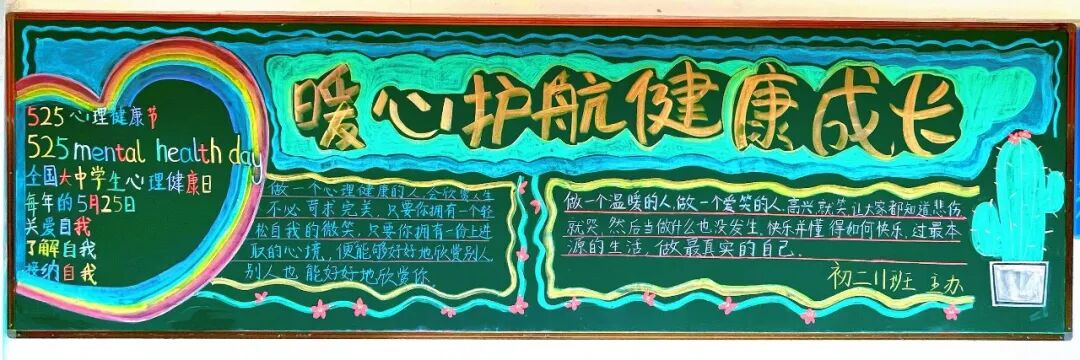 暖心护航健康成长
525心理健康节
525 mental health day
全国大中学生心理健康日
每年的5月25日
关爱自我
了解自我
接纳自我
做一个心理健康的人,会欣赏人生
不必苛求完美,只要你拥有一个轻
松自我的微笑,只要你拥有一份上进
取的心境,便能够好好地欣赏别人
别人也能好好地欣赏你.
做一个温暖的人,做一个爱笑的人,高兴就笑,让大家都知道悲伤
就哭,然后当做什么也没发生,快乐并懂得如何快乐,过最本
源的生活,做最真实的自己.
初二11班 主办